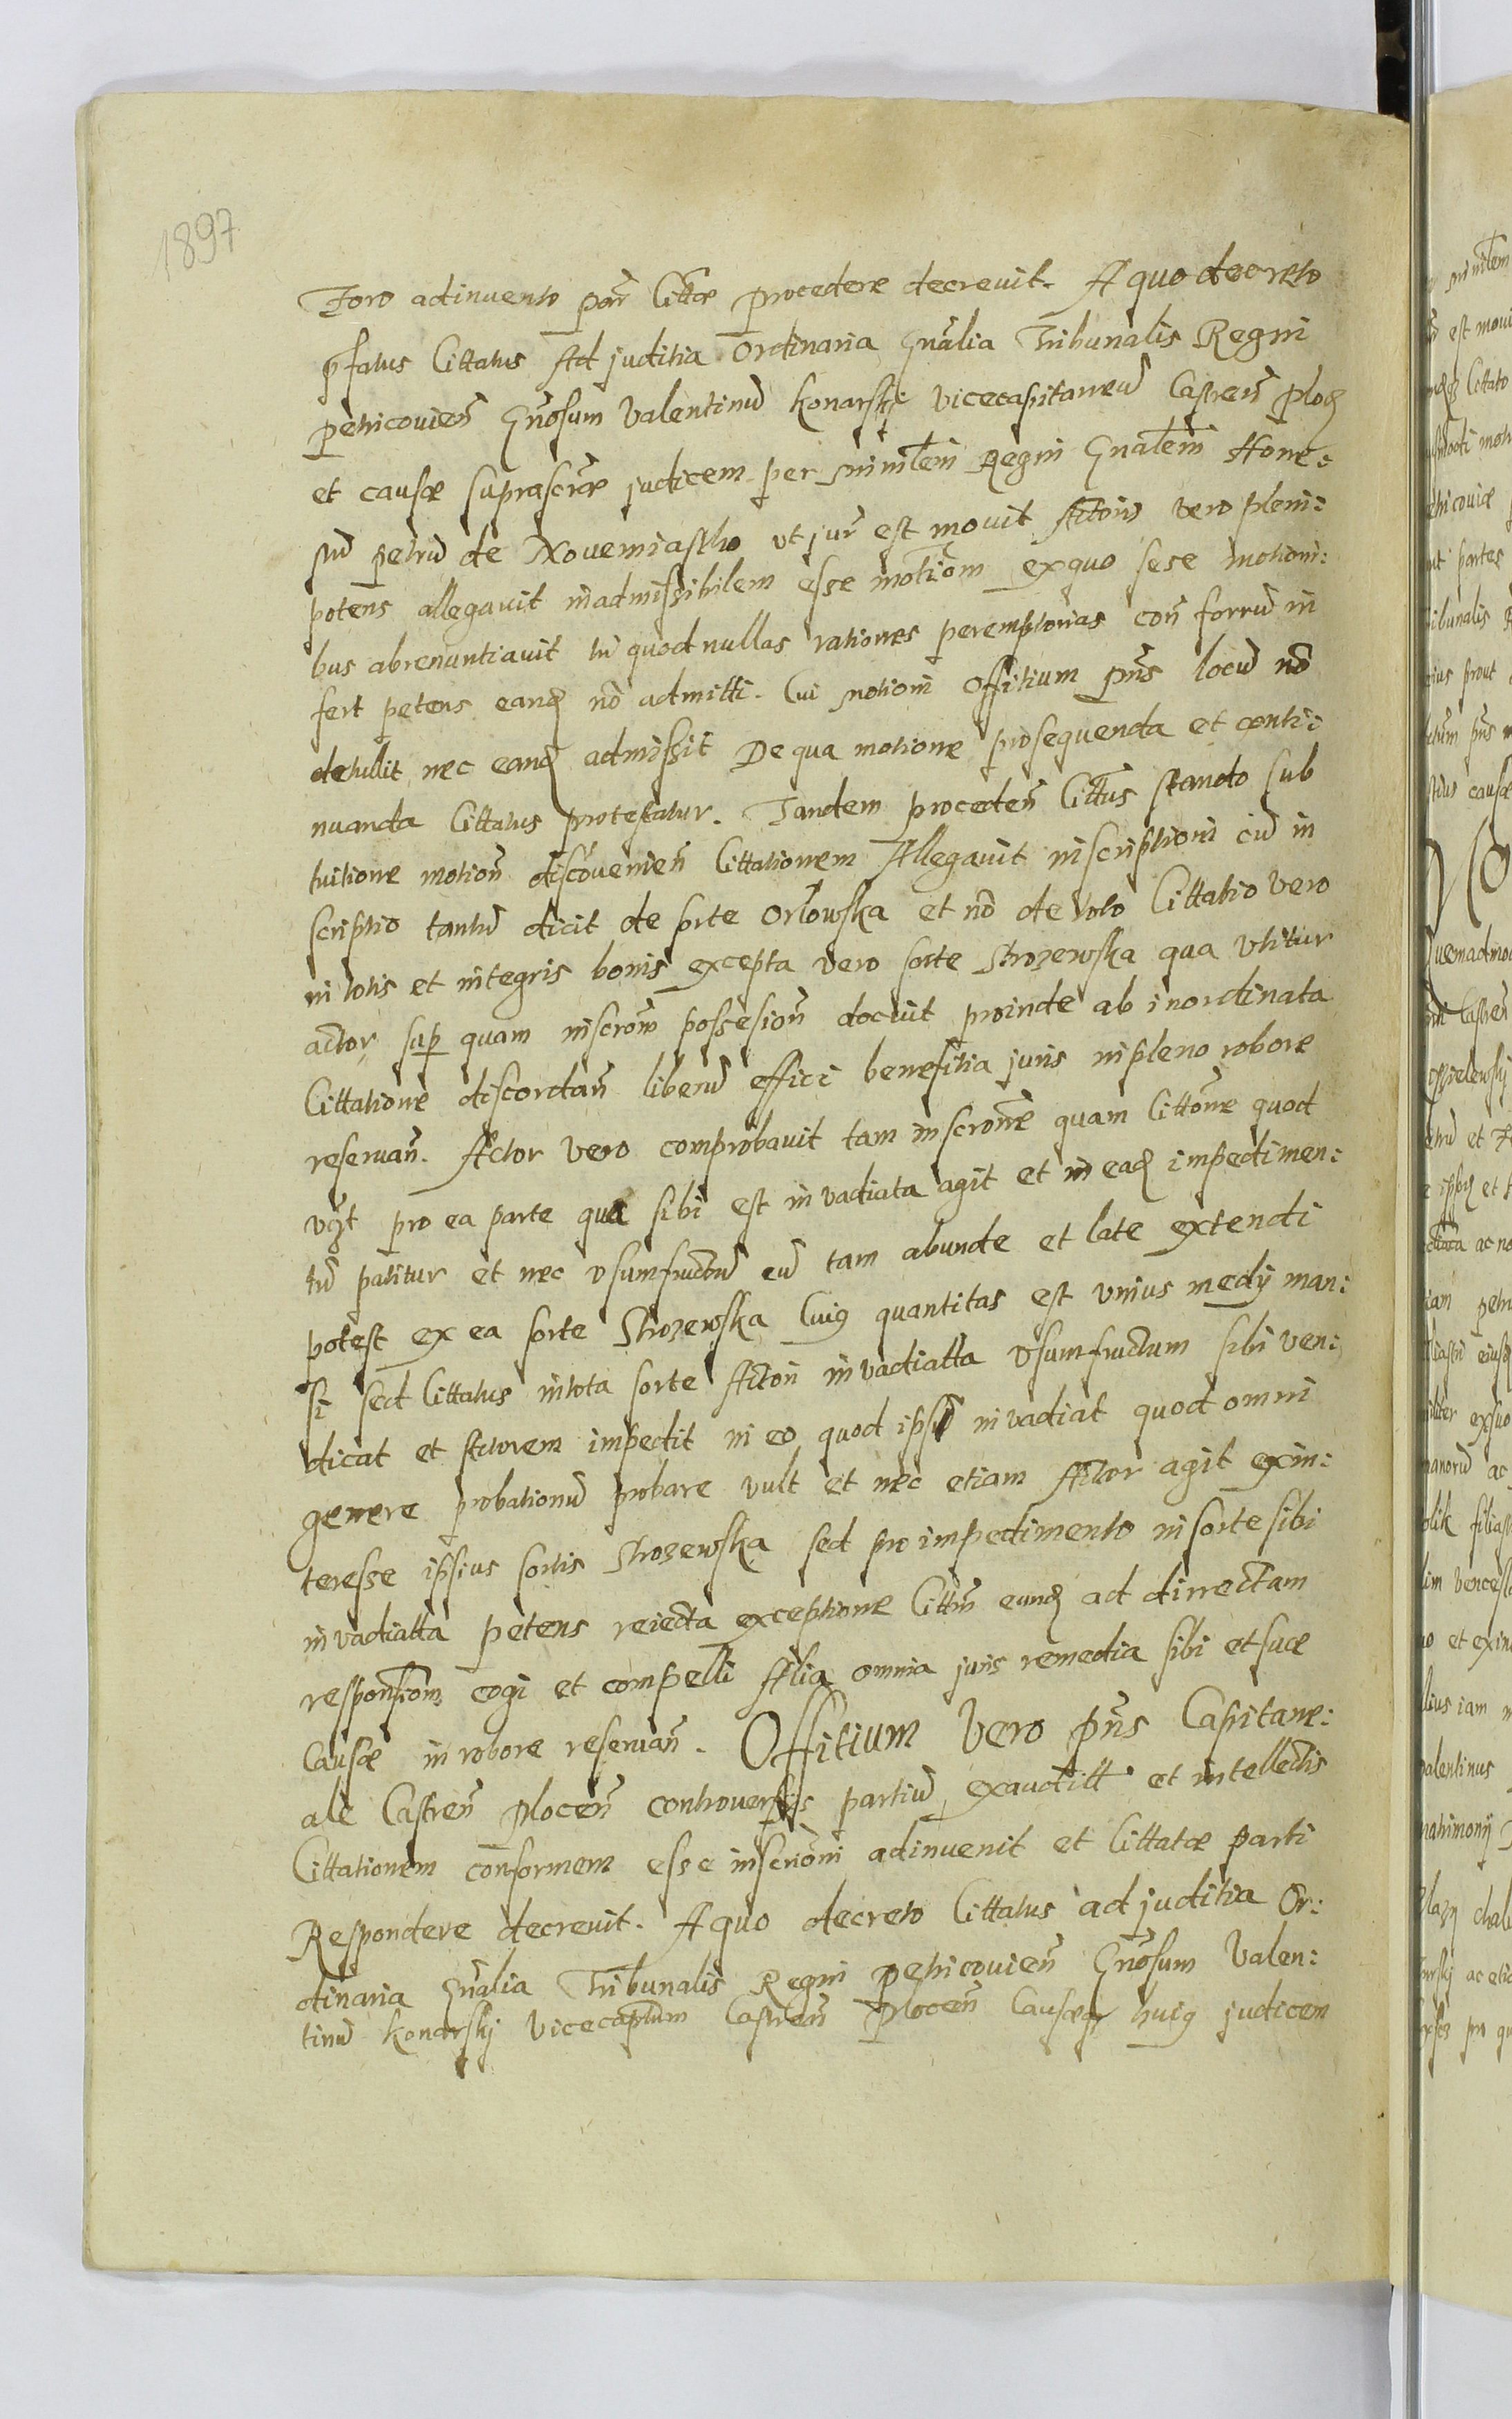 1897
Foro adinvento parti Cittatæ procedere decrevit. A quo decreto
pfatus Cittatus Ad juditia Ordinaria Gñalia Tribunalis Regni
petricovieñ Gñosum Valentinũ Konarskj vicecapitaneũ Castreñ ploceñ
et causæ suprascræ judicem per minłem Regni Gnałem Hone:
stũ petrũ de Novemiastho ut jur est movit Actoris vero pleni:
potens allegavit inadmissibilem esse motiom ex quo sese motioni:
bus abrenuntiavit tũ quod nullas rationes peremptorias coñ forrũ in
fert petens eandem nõ admitti. Cui motioni Offitium pñs locũ nõ
detullit nec eandem admissit De qua motione prosequenda et conti:
nuanda Cittatus protestatur. Tandem procedeñ Cittus stando sub
tuitione motioñ discõvenieñ Cittationem Allegavit inscriptioni cũ in
scriptio tantũ dicit de sorte Orłowska et nõ de toto Cittatio vero
in totis et integris bonis excepta vero sorte Strozewska qua utitur
actor sup quam inscrõm possesioñ docuit proinde ab inordinata
Cittatione discordañ liberũ effici benefitia juris in pleno robore
reservañ. Actor vero comprobavit tam inscrõne quam Cittõne quod
vigt pro ea parte quæ sibi est invadiata agit et in eadem impedimen:
tũ patitur et nec usumfructũ eũ tam abunde et late extendi
potest ex ea sorte Strozewska Cuius quantitas est unius medij man:
si sed Cittatus in tota sorte Actori invadiatta usumfructum sibi ven:
dicat et Actorem impedit in eo quod ipsũ invadiat quod omni
genere probationũ probare vult et nec etiam Actor agit ex in:
teresse ipsius sortis Strozewska sed pro impedimento in sorte sibi
invadiatta petens reiecta exceptione Citti eundem ad dirrectam
responsiom cogi et compelli Alia omnia juris remedia sibi et suæ
Causæ in robore reservañ. Offitium Vero pñs Capitane:
ale Castreñ ploceñ controversijs partiũ exauditt et intellectis
Cittationem conformem esse inscriõni adinvenit et Cittatæ parti
Respondere decrevit. A quo decreto Cittatus ad juditia Or:
dinaria Gñalia Tribunalis Regni petricovieñ Gñosum Valen:
tinũ Konarskj Vicecaptum Castreñ Ploceñ Causæq huius judicem